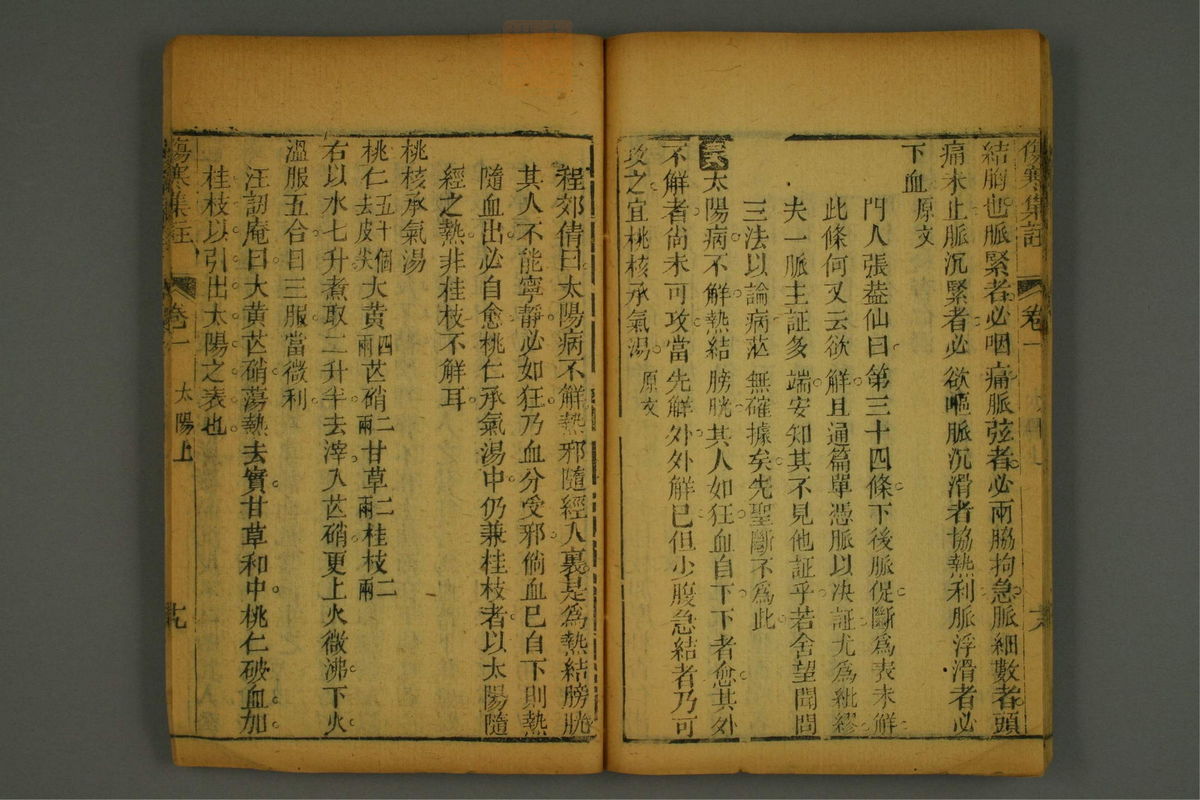 傷寒集註 卷一 十八
結胸也脈緊者必咽痛脈弦者必兩脇拘急脈細數者頭
痛未止脈沉緊者必欲嘔脈沉滑者協熱利脈浮滑者必
下血原文
門人張蓋仙曰第三十四條下後脈促斷為表未解
此條何又云欲解且通篇單憑脈以決証尤為紕繆
夫一脈主証多端安知其不見他証乎若舍望聞問
三法以論病茫無確據矣先聖斷不為此
太陽病不解熱結膀胱其人如狂血自下下者愈其外
不解者尚未可攻當先解外外解已但少腹急結者乃可
攻之宜桃核承氣湯原文
程郊倩曰太陽病不解熱邪隨經入裏是為熱結膀胱
其人不能寧靜必如狂乃血分受邪倘血已自下則熱
隨血出必自愈桃仁承氣湯中仍兼桂枝者以太陽隨
經之熱非桂枝不解耳
桃核承氣湯
桃仁五十個去皮尖大黃四兩芒硝二兩甘草二兩桂枝二兩
右以水七升煮取二升半去滓入芒硝更上火微沸下火
溫服五合日三服當微利
汪訒庵曰大黃芒硝蕩熱去實甘草和中桃仁破血加
桂枝以引出太陽之表也
傷寒集註 卷一 太陽上 十九